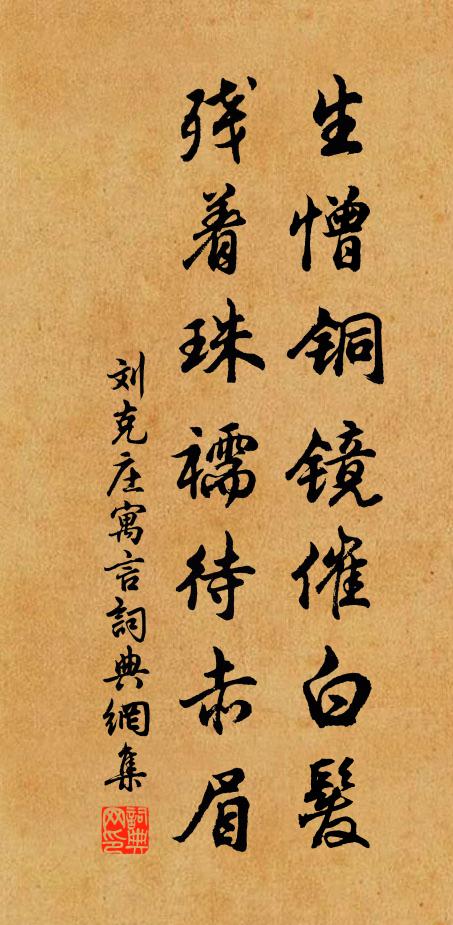 生憎铜镜催白髮
残着珠襦待赤眉
刘克庄寓言詞典網集
詞典网印